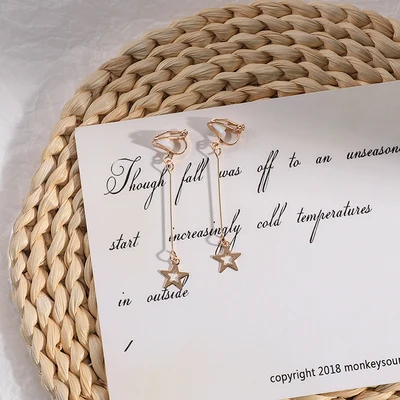 Though fall was off to an unseason
start increasingly cold temperatures
in outside
/
copyright 2018 monkeysour